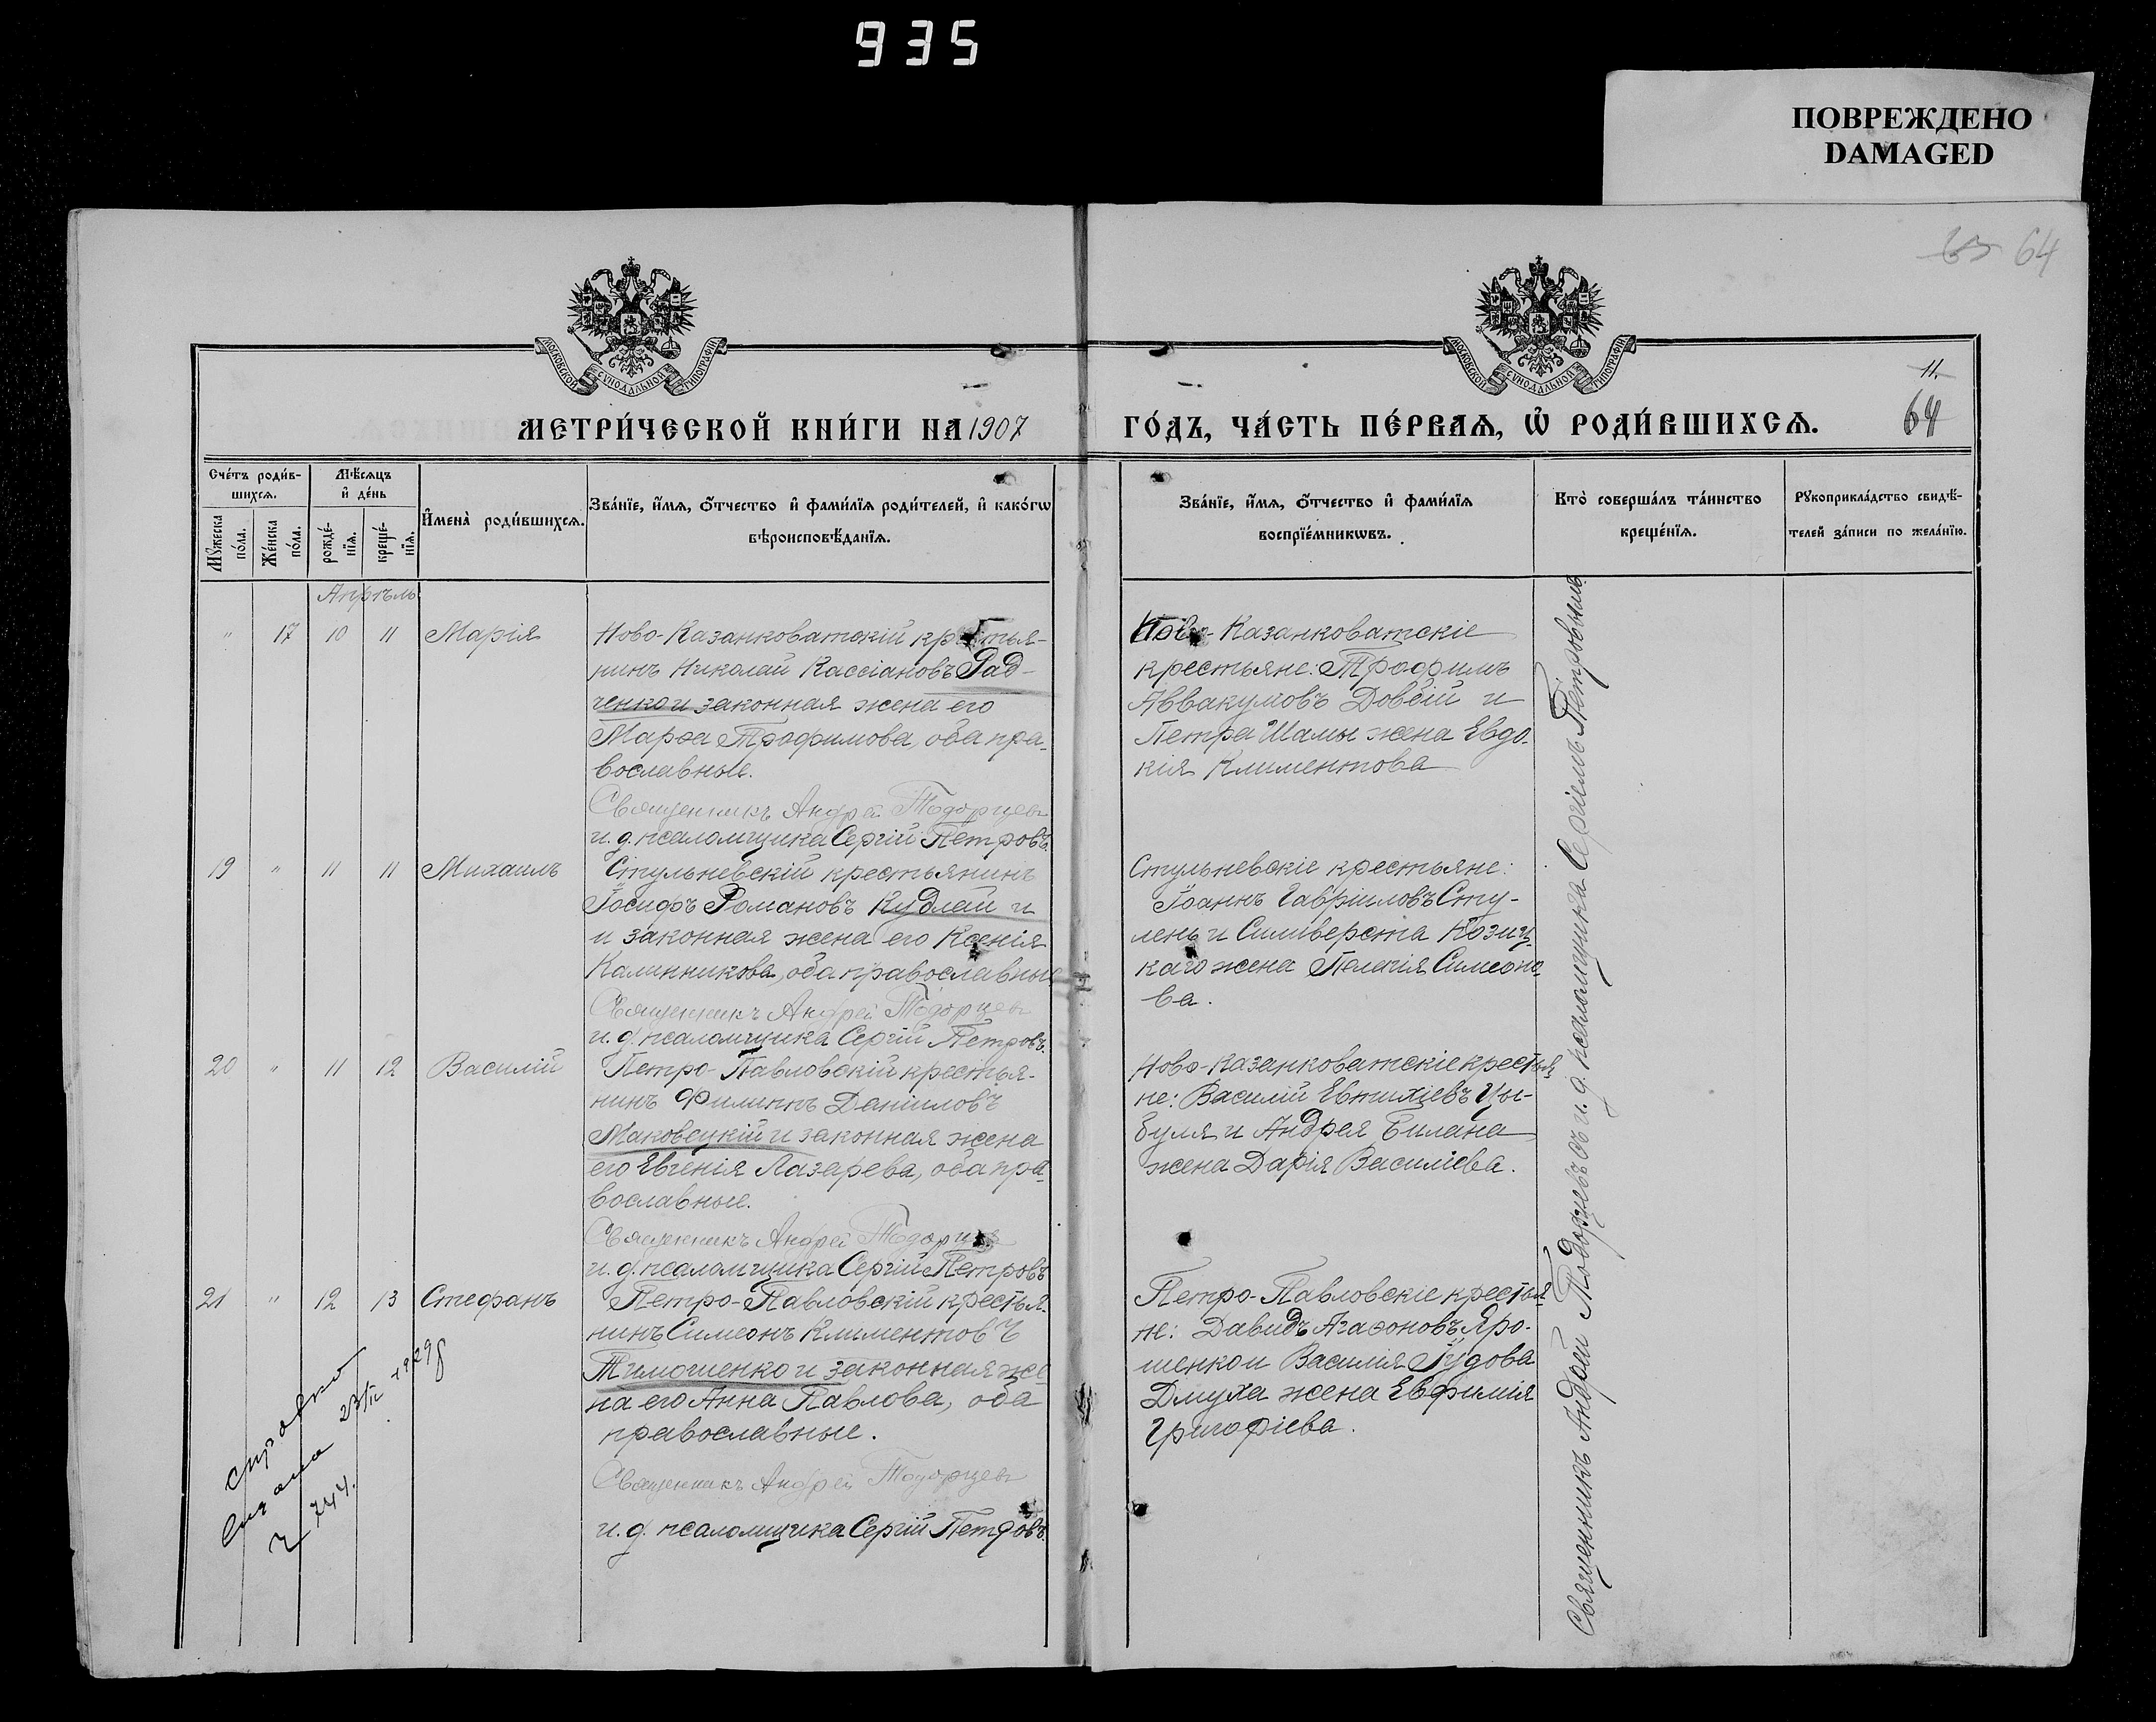 935
ПОВРЕЖДЕНО
DAMAGED
64
МОСКОВСКОЙ СѴНОДАЛЬНОЙ ТИПОГРАФІИ
МОСКОВСКОЙ СѴНОДАЛЬНОЙ ТИПОГРАФІИ
11.
64
МЕТРИ́ЧЕСКОЙ КНИ́ГИ НА 1907
ГО́ДЪ, ЧА́СТЬ ПЕ́РВАѦ, Ѽ РОДИ́ВШИХСѦ.
Сче́тъ роди́в-
шихсѧ.
Мѣ́сѧцъ
и҆ де́нь
Мꙋ́жеска
по́ла.
Же́нска
по́ла.
рожде́-
нїѧ.
креще́-
нїѧ.
И҆мена̀ роди́вшихсѧ.
Зва́нїе, и҆́мѧ, ѻ҆́тчество и҆ фами́лїѧ роди́телей, и҆ како́гѡ
вѣроисповѣ́данїѧ.
Зва́нїе, и҆́мѧ, ѻ҆́тчество и҆ фами́лїѧ
воспрїе́мникѡвъ.
Кто̀ соверша́лъ та́инство
креще́нїѧ.
Рꙋкоприкла́дство свидѣ́-
телей за́писи по жела́нїю.
Апрѣль
" 17 10 11 Марія
Ново-Казанковатскій крестья-
нинъ Николай Кассіановъ Рад-
ченко и законная жена его
Марѳа Трофимова, оба пра-
вославные.
Священникъ Андрей Тодорцевъ
и. д. псаломщика Сергій Петровъ.
Ново-Казанковатскіе
крестьяне: Трофимъ
Аввакумовъ Довбій и
Петра Шамы жена Евдо-
кія Климентова
19 " 11 11 Михаилъ
Стульневскій крестьянинъ
Іосифъ Романовъ Кудлай и
и законная жена его Ксенія
Калинникова, оба православные
Священникъ Андрей Тодорцевъ
и. д. псаломщика Сергій Петровъ.
Стульневскіе крестьяне:
Іоаннъ Гавріиловъ Сту-
лень и Силиверста Козиц-
каго жена Пелагія Симеоно-
ва.
20 " 11 12 Василій
Петро-Павловскій крестья-
нинъ Филиппъ Даниловъ
Маковецкій и законная жена
его Евгенія Лазарева, оба пра-
вославные.
Священникъ Андрей Тодорцевъ
и. д. псаломщика Сергій Петровъ
Ново-Казанковатскіе крестья-
не: Василій Евтихіевъ Цы-
буля и Андрея Билана
жена Дарія Василіева.
21 " 12 13 Стефанъ
Петро-Павловскій крестья-
нинъ Симеонъ Климентовъ
Тимошенко и законная же-
на его Анна Павлова, оба
православные.
Священникъ Андрей Тодорцевъ
и. д. псаломщика Сергій Петровъ.
Петро-Павловскіе крестья-
не: Давидъ Агаѳоновъ Яро-
шенко и Василія Іудова
Дмуха жена Евфимія
Григоріева.
Священникъ Андрей Тодорцевъ съ и. д. псаломщика Сергіемъ Петровымъ.
справка
1929
744.